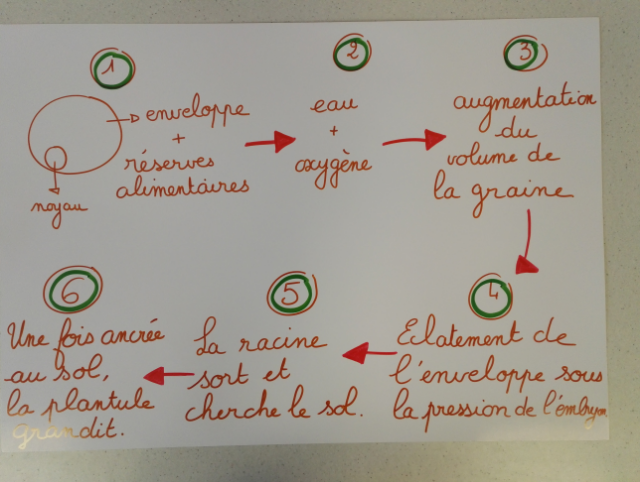 1
enveloppe
+
réserves
alimentaires
noyau
2
eau
+
oxygène
3
augmentation
du
volume de
la graine
4
Eclatement de
l'enveloppe sous
la pression de l'embryon
5
La racine
sort et
cherche le sol.
6
Une fois ancrée
au sol,
la plantule
grandit.